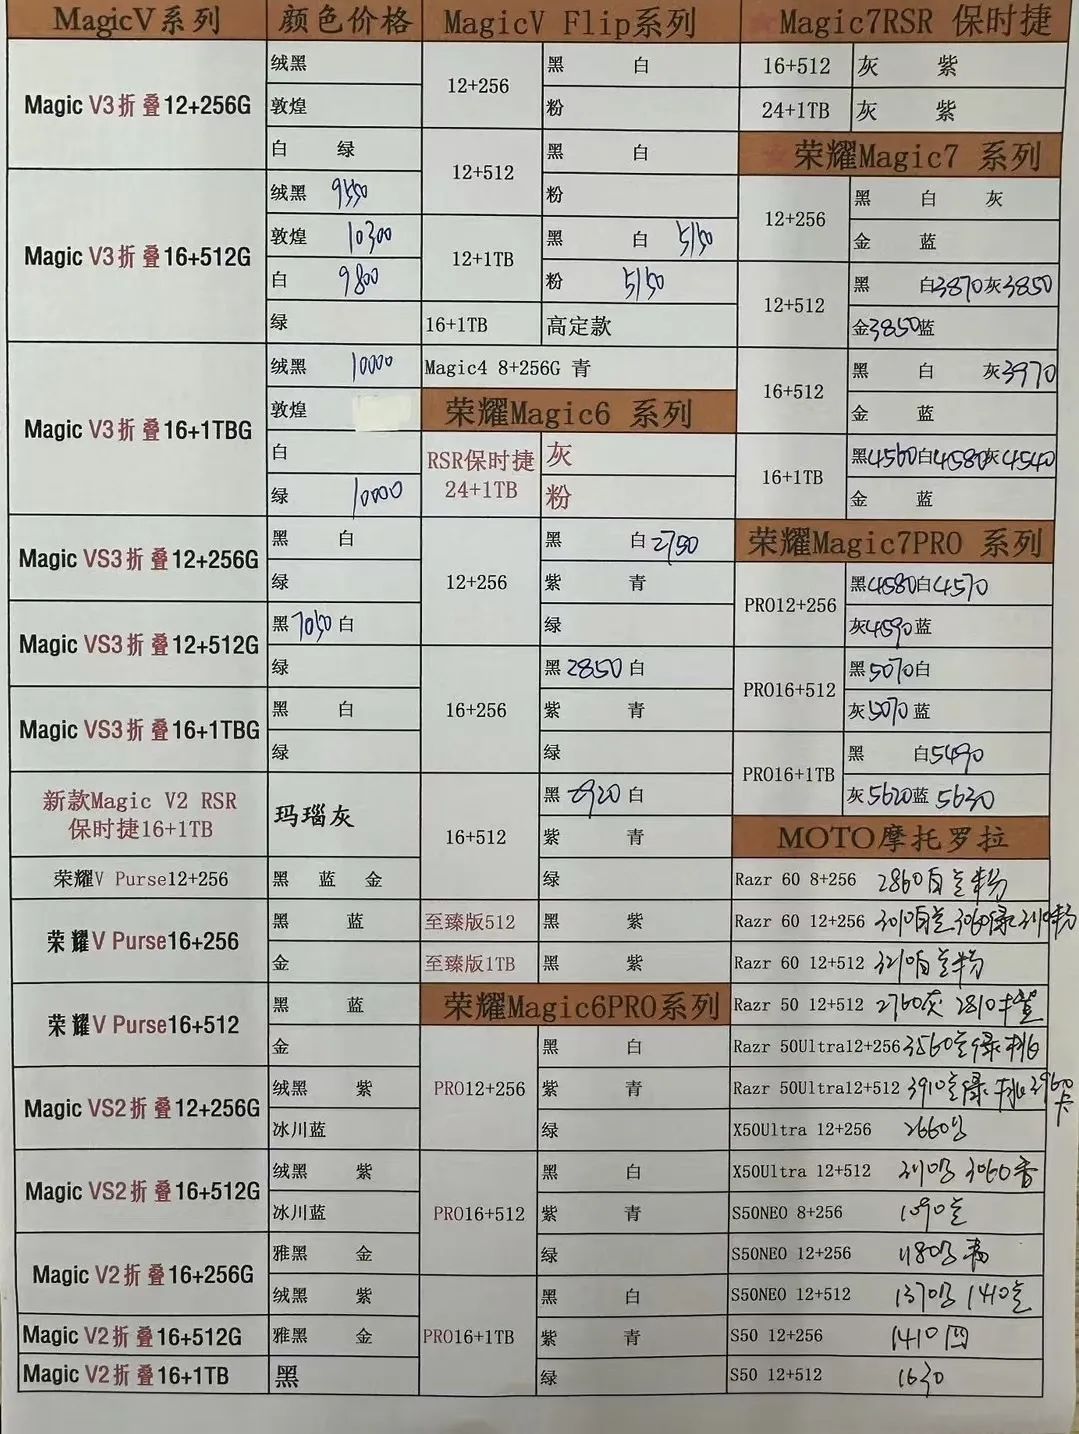 MagicV系列 颜色价格
Magic V3折叠12+256G
绒黑
敦煌
白 绿
Magic V3折叠16+512G
绒黑 9550
敦煌 10300
白 9800
绿
Magic V3折叠16+1TBG
绒黑 10000
敦煌
白
绿 10000
Magic VS3折叠12+256G
黑 白
绿
Magic VS3折叠12+512G
黑7050白
绿
Magic VS3折叠16+1TBG
黑 白
绿
新款Magic V2 RSR
保时捷16+1TB
玛瑙灰
荣耀V Purse12+256 黑 蓝 金
荣耀V Purse16+256
黑 蓝
金
荣耀V Purse16+512
黑 蓝
金
Magic VS2折叠12+256G
绒黑 紫
冰川蓝
Magic VS2折叠16+512G
绒黑 紫
冰川蓝
Magic V2折叠16+256G
雅黑 金
绒黑 紫
Magic V2折叠16+512G 雅黑 金
Magic V2折叠16+1TB 黑
MagicV Flip系列
12+256
黑 白
粉
12+512
黑 白
粉
12+1TB
黑 白 5150
粉 5150
16+1TB 高定款
Magic4 8+256G 青
荣耀Magic6 系列
RSR保时捷
24+1TB
灰
粉
12+256
黑 白2750
紫 青
绿
16+256
黑2850白
紫 青
绿
16+512
黑 2920 白
紫 青
绿
至臻版512 黑 紫
至臻版1TB 黑 紫
荣耀Magic6PRO系列
PRO12+256
黑 白
紫 青
绿
PRO16+512
黑 白
紫 青
绿
PRO16+1TB
黑 白
紫 青
绿
★Magic7RSR 保时捷
16+512 灰 紫
24+1TB 灰 紫
★荣耀Magic7 系列
12+256
黑 白 灰
金 蓝
12+512
黑 白3870灰3850
金3850蓝
16+512
黑 白 灰3970
金 蓝
16+1TB
黑4560白4580灰4540
金 蓝
荣耀Magic7PRO 系列
PRO12+256
黑4580白4570
灰4590蓝
PRO16+512
黑5070白
灰5070蓝
PRO16+1TB
黑 白5490
灰5620蓝5630
MOTO摩托罗拉
Razr 60 8+256 2860白兰粉
Razr 60 12+256 3010白兰3060绿3110粉
Razr 60 12+512 3210白兰粉
Razr 50 12+512 2760灰 2810
Razr 50Ultra12+256 3560兰绿桃
Razr 50Ultra12+512 3910兰绿桃3960卡
X50Ultra 12+256 2660
X50Ultra 12+512 3110 3060香
S50NEO 8+256 1090兰
S50NEO 12+256 1180
S50NEO 12+512 1370 1410兰
S50 12+256 1410
S50 12+512 1630